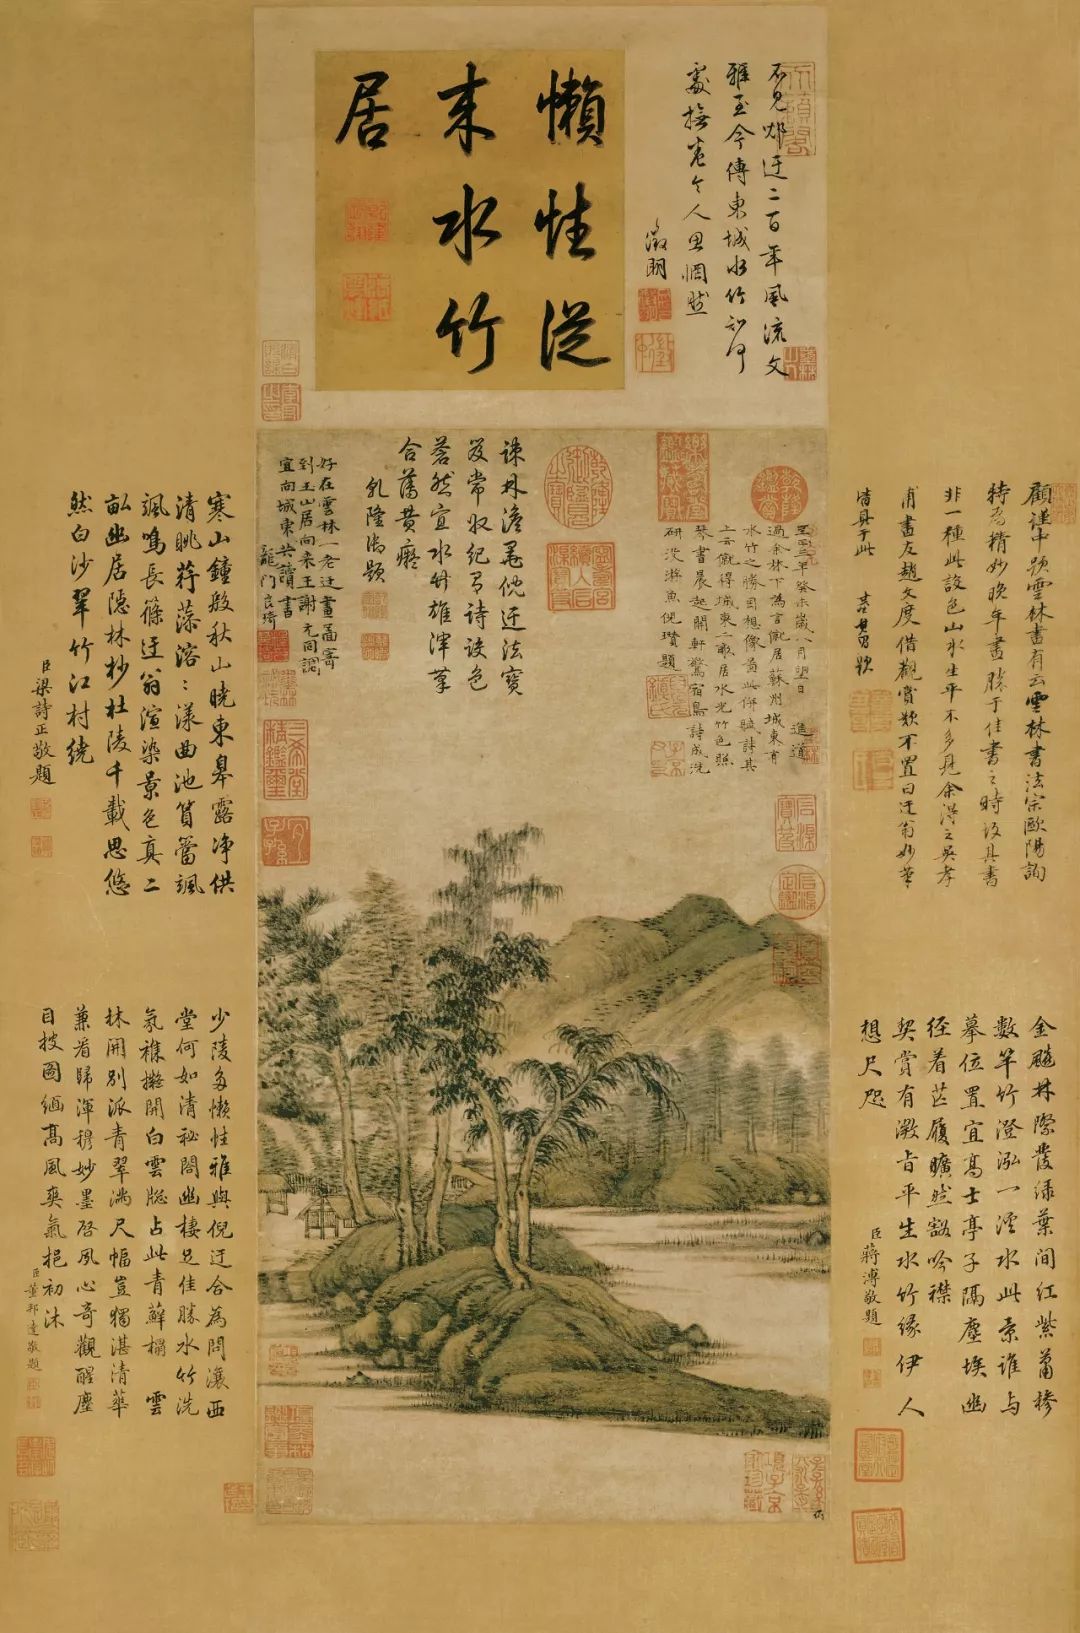 懶性從
来水竹
居
不見倪迂二百年風流文
雅至今傳東城水竹知何
處撫卷令人思惘然
徵明
至正三年癸未歲八月望日進道
過余林下為言僦居蘇州城東有
水竹之勝因想像圖此併賦詩其
上云僦得城東二畝居水光竹色照
琴書晨起開軒驚宿鳥詩成洗
研没游魚倪瓚題
疎林澹靄倪迂法寶
笈常收詩設色
蒼然宜水竹雄渾筆
合黄癡
乾隆御題
好在雲林一老迂畫圖寄
到玉山居向来王謝元同調
宜向城東共讀書
龍門良琦
顧謹中題雲林畫有云雲林書法宗歐陽詢
特為精妙晚年畫勝于佳書之時故其書
非一種此設色山水生平不多見余得之吴孝
甫畫友趙文度借觀賞歎不置曰迂翁妙筆
皆具于此
其昌題
金颷林際發緑葉間紅紫蕭椮
數竿竹澄泓一溪水此景誰与
摹位置宜高士亭子隔塵埃幽
径着芒履曠然豁吟襟
契賞有澂旨平生水竹緣伊人
想尺咫
臣蔣溥敬題
寒山鐘殷秋山曉東皋露净供
清眺荇藻溶〻漾曲池篔簹颯
颯鳴長篠迂翁渲染景色真二
畝幽居隱林杪杜陵千載思悠
然白沙翠竹江村繞
臣梁詩正敬題
少陵多懶性雅與倪迂合為問瀼西
堂何如清祕閣幽棲足佳勝水竹洗
氛襍擬開白雲牕占此青蘚榻雲
林開別派青翠滿尺幅豈獨湛清華
兼看歸渾穆妙墨啓夙心奇觀醒塵
目披圖緬高風爽氣挹初沐
臣董邦達敬題